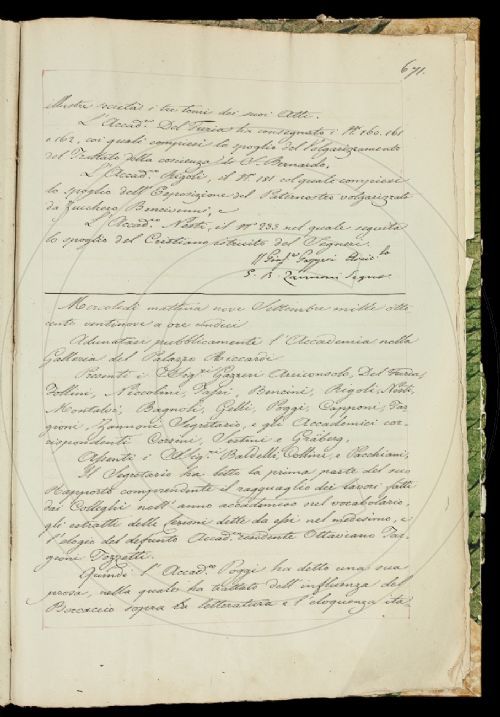 671.
illustre società i tre tomi dei suoi Atti.
L'Accad.co Del Furia ha consegnato i N.i 160. 161
e 162, coi quali compiesi lo spoglio del Volgarizzamento
del Trattato della coscienza di S. Bernardo,
L'Accad.co Rigoli, il N.o 181 col quale compiesi
lo spoglio dell'Esposizione del Paternostro volgarizzata
da Zucchero Bencivenni, e
L'Accad.co Nesti, il N.o 233 nel quale seguita
lo spoglio del Cristiano istruito del Segneri.
Gazzeri Arcic.lo
G. B. Zannoni Segret.
Mercoledì mattina nove Settembre mille otto
cento ventinove a ore undici
Adunatasi pubblicamente l'Accademia nella
Galleria del Palazzo Riccardi
Presenti i SS.ig.ri Gazzeri Arciconsolo, Del Furia,
Follini, Niccolini, Papi, Bencini, Rigoli, Nesti,
Montalvi, Bagnoli, Gelli, Poggi, Capponi, Tar-
gioni, Zannoni Segretario, e gli Accademici cor-
rispondenti Corsini, Sestini e Gräberg,
Assenti i SS.ig.ri Baldelli, Collini, e Pacchiani,
Il Segretario ha letto la prima parte del suo
Rapporto comprendente il ragguaglio dei lavori fatti
dai Colleghi nell'anno accademico nel vocabolario,
gli estratti delle Lezioni dette da essi nel medesimo, e
l'elogio del defunto Accad.co residente Ottaviano Tar-
gioni Tozzetti.
Quindi l'Accad.co Poggi ha detto una sua
prosa, nella quale ha trattato dell'influenza del
Boccaccio sopra la letteratura e l'eloquenza ita-